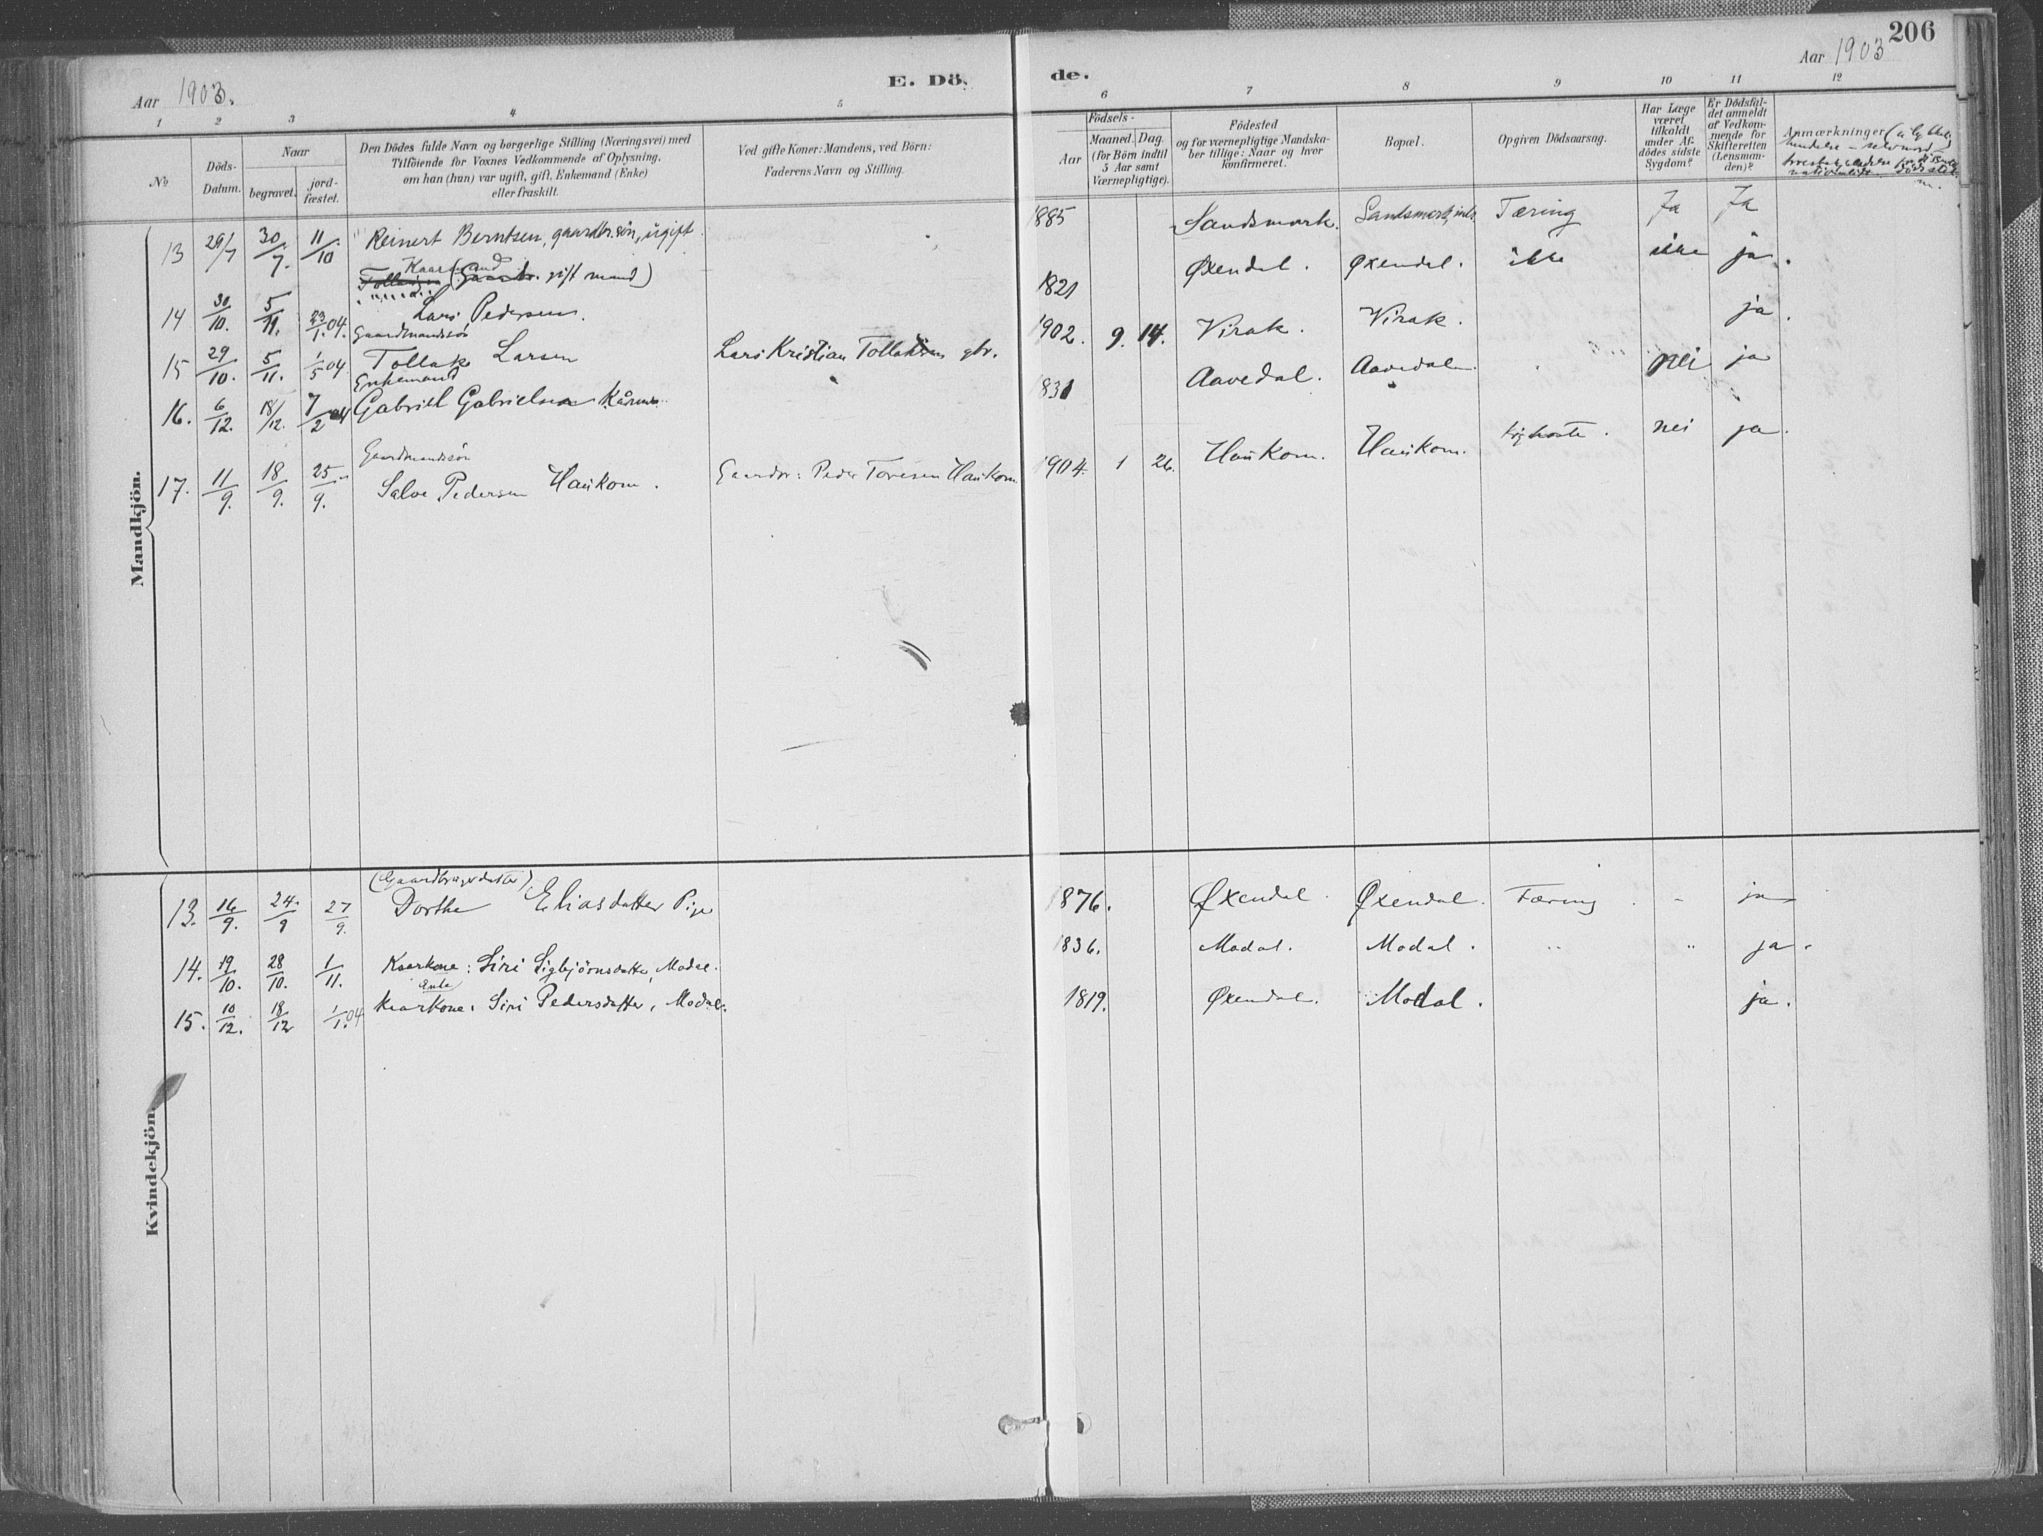 206
Aar 1903.
E. Dö- de.
Aar 1903
1 2 3 4 5 6 7 8 9 10 11 12
No
Döds-Datum.
Naar
begravet.
jord-fæstet.
Den Dödes fulde Navn og borgerlige Stilling (Næringsvei) med
Tilföiende for Voxnes Vedkommende af Oplysning,
om han (hun) var ugift, gift, Enkemand (Enke)
eller fraskilt.
Ved gifte Koner: Mandens, ved Börn:
Faderens Navn og Stilling.
Födsels-
Aar
Maaned. Dag.
(for Börn indtil
5 Aar samt
Værnepligtige).
Födested
og for værnepligtige Mandska-
ber tillige: Naar og hvor
konfirmeret.
Bopæl.
Opgiven Dödsaarsag.
Har Læge
været
tilkaldt
under Af-
dödes sidste
Sygdom?
Er Dödsfal-
det anmeldt
af Vedkom-
mende for
Skifteretten
(Lensman-
den)?
Anmærkninger
Mandkjön.
13 29/7 30/7. 11/10 Reinert Berntsen, gaardbr.sön, ugift. 1885 Sandsmark. Tæring Ja Ja
Kaarmand
gift mand)
14 30/10. 5/11. 23/1.04. Lars Pedersen. 1821 Øxendal. Øxendal. ikke ikke ja.
Gaardmandssön
15 29/10. 5/11. 1/5 04 Tollak Larsen Lars Kristian Tollaksen gbr. 1902. 9. 14. Virak. Virak. ja.
Enkemand
16. 6/12. 18/12. 7/2 04 Gabriel Gabrielsen 1831 Aavedal. Aavedal. nei ja
Gaardmandssön
17. 11/9. 18/9. 25/9. Salve Pedersen Haukom. Gaardbr: Peder Toresen Haukom 1904. 1 26. Haukom. Haukom. Kighoste. nei ja.
Kvindekjön.
(Gaardbrugerdatter)
13. 16/9. 24/9 27/9. Dorthe Eliasdatter Pige 1876. Øxendal. Øxendal. Tæring. - ja
14. 19/10. 28/10. 1/11. Kaarkone: Siri Sigbjörnsdatter, Modal. 1836. Modal. Modal. " " ja.
enke
15. 10/12. 18/12 1/1.04 Kaarkone: Siri Pedersdatter, Modal. 1819. Øxendal. Modal. ja.